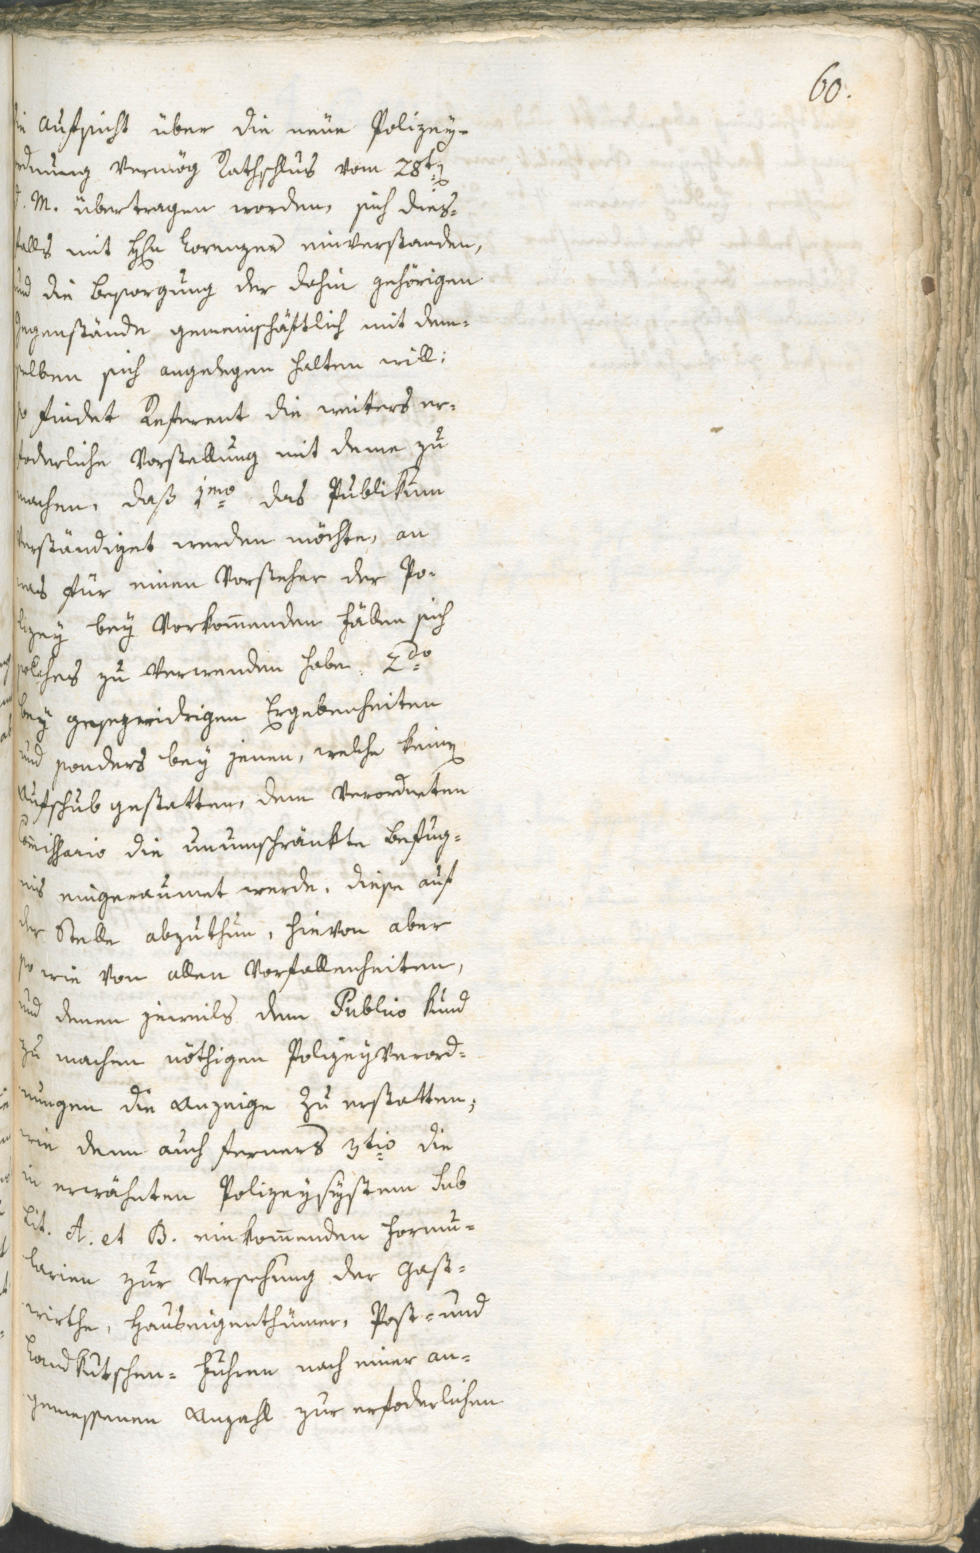 60.
die Aufsicht über die neüe Polizey-
ordnung vermög Rathschlus vom 28t:
d. M. übertragen worden, sich dies-
falls mit H: Lorenzer einverstanden,
und die Besorgung der dahin gehörigen
Gegenstände gemeinschäftlich mit dem-
selben sich angelegen halten will:
so findet Referent die weiters er-
foderliche Vorstellung mit deme zu
machen, daß 1mo das Publikum
verständiget werden möchte, an
was für einen Vorsteher der Po-
lizey bey Vorkom̅enden Fällen sich
solches zu verwenden habe. 2do
bey gesezwidrigen Ergebenheiten
und sonders bey jenen, welche keinen
Aufschub gestatten, dem Verordneten
Com̅issario die unumschränkte Befug-
nis eingeraumet werde, diese auf
der Stelle abzuthun, hievon aber
so wie von allen Vorfallenheiten,
und denen jeweils dem Publico kund
zu machen nöthigen Polizeyverord-
nungen die Anzeige zu erstatten;
wie dann auch ferners 3tio die
in erwähnten Polizeysystem sub
Lit. A. et B. einkom̅enden Formu-
larien zur Versehung der Gast-
wirthe, Hauseigenthümer, Post- und
Landkutschen-Führen nach einer an-
gemessenen Anzahl zur erfoderlichen